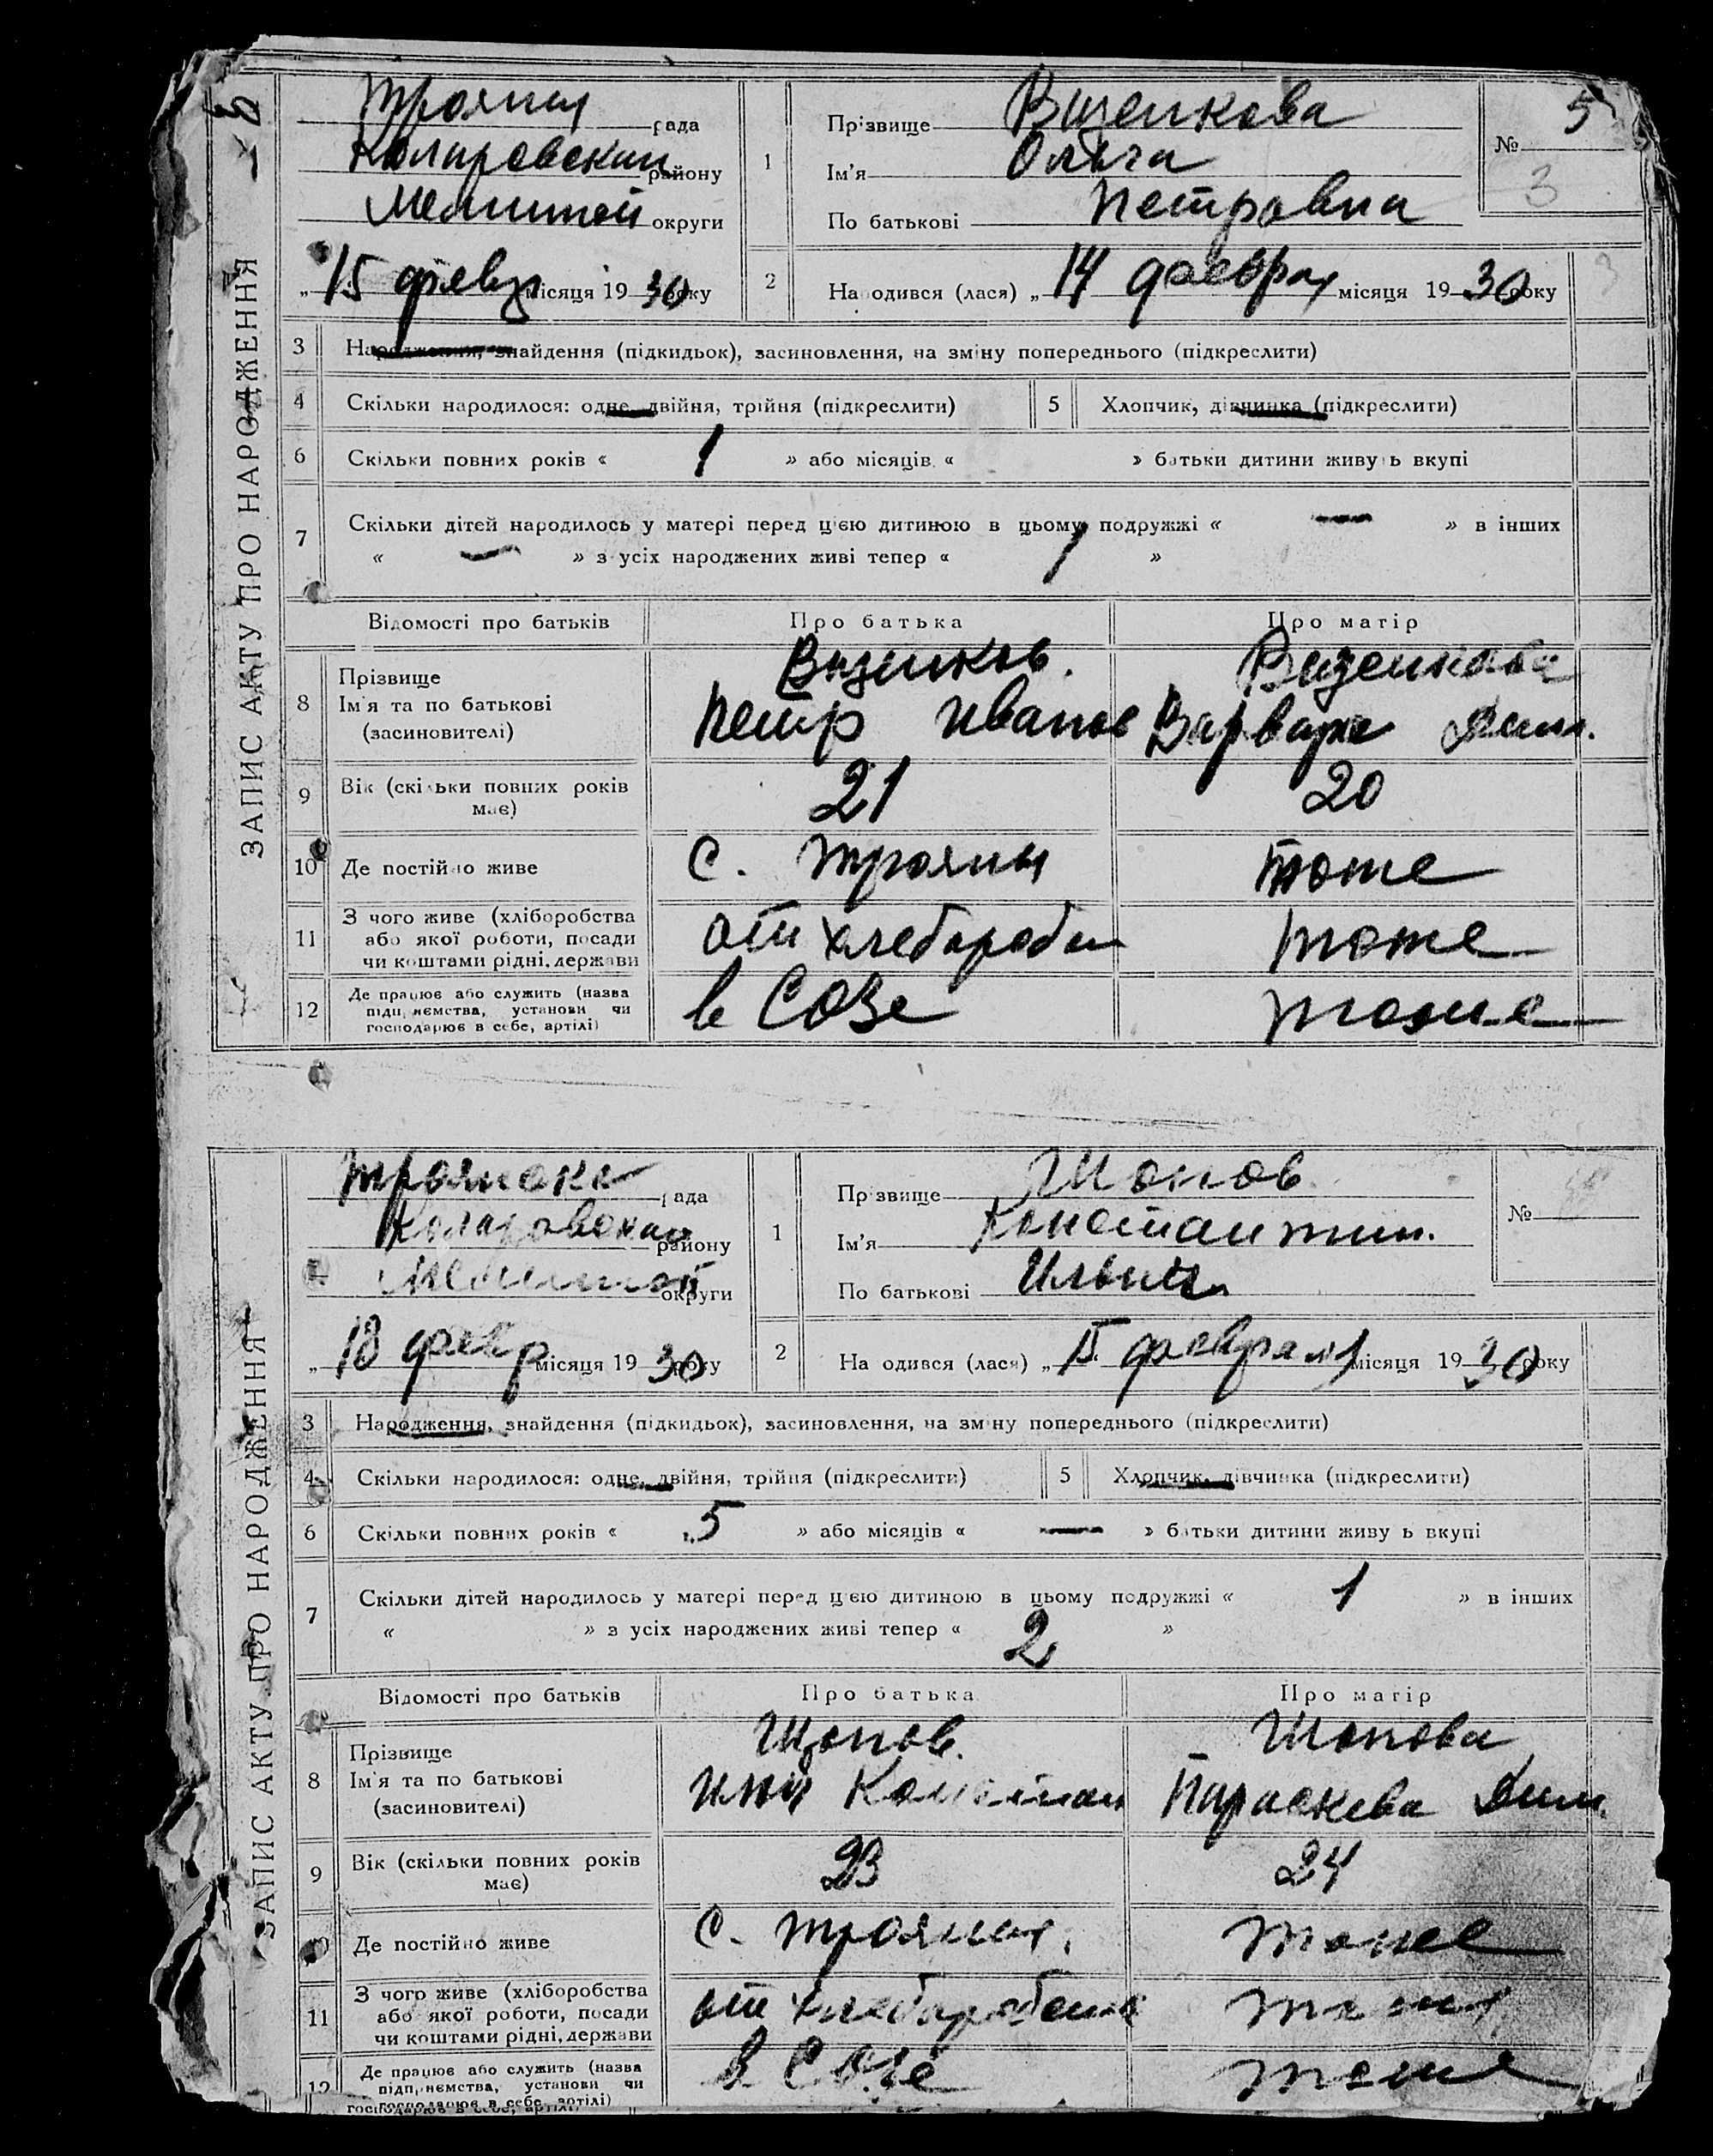 ЗАПИС АКТУ ПРО НАРОДЖЕННЯ
Трояны рада
Коларовский району
округи
„ 15 февр місяця 1930 року
1
Прізвище Визенкова
Ім'я Ольга
По батькові Петровна
№ 5
3
2
Народився (лася) „ 14 февраля місяця 1930 року
3
3 Народження, знайдення (підкидьок), засиновлення, на зміну попереднього (підкреслити)
4 Скільки народилося: одне, двійня, трійня (підкреслити)
5 Хлопчик, дівчинка (підкреслити)
6 Скільки повних років « 1 » або місяців « » батьки дитини живуть вкупі
7 Скільки дітей народилось у матері перед цією дитиною в цьому подружжі « — » в інших
« — » з усіх народжених живі тепер « 1 »
Відомості про батьків Про батька Про матір
8 Прізвище
Ім'я та по батькові
(засиновителі)
Визенков.
Петр Иванов
Визенкова
Варвара Дим.
9 Вік (скільки повних років
має)
21 20
10 Де постійно живе с. Трояны тоже
11 З чого живе (хліборобства
або якої роботи, посади
чи коштами рідні, держави
от хлебороб тоже
12 Де працює або служить (назва
підприємства, установи чи
господарює в себе, артілі)
в СОЗе тоже
ЗАПИС АКТУ ПРО НАРОДЖЕННЯ
Троянска рада
Коларовский району
округи
„ 18 февр місяця 1930 року
1
Прізвище Шопов
Ім'я Константин.
По батькові Ильич
№
2
Народився (лася) „ 15 февраля місяця 1930 року
3 Народження, знайдення (підкидьок), засиновлення, на зміну попереднього (підкреслити)
4 Скільки народилося: одне, двійня, трійня (підкреслити)
5 Хлопчик, дівчинка (підкреслити)
6 Скільки повних років « 5 » або місяців « — » батьки дитини живуть вкупі
7 Скільки дітей народилось у матері перед цією дитиною в цьому подружжі « 1 » в інших
« » з усіх народжених живі тепер « 2 »
Відомості про батьків Про батька Про матір
8 Прізвище
Ім'я та по батькові
(засиновителі)
Шопов.
Илья Констан
Шопова
Параскева Дим.
9 Вік (скільки повних років
має)
23 24
10 Де постійно живе с. Трояны. тоже
11 З чого живе (хліборобства
або якої роботи, посади
чи коштами рідні, держави
от тоже
12 Де працює або служить (назва
підприємства, установи чи
господарює в себе, артілі)
в Созе тоже